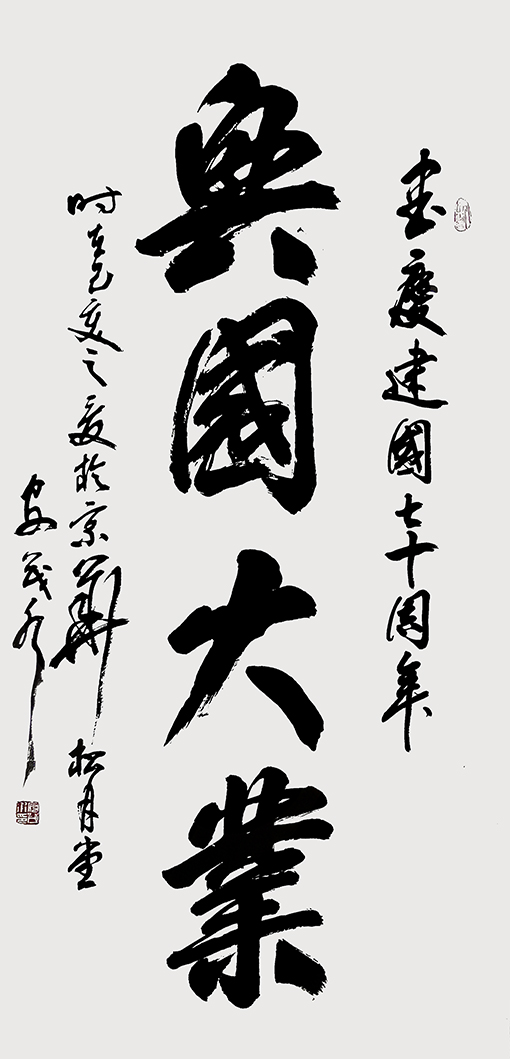 喜慶建國七十周年
興國大業
时在己亥之夏於京華松月堂